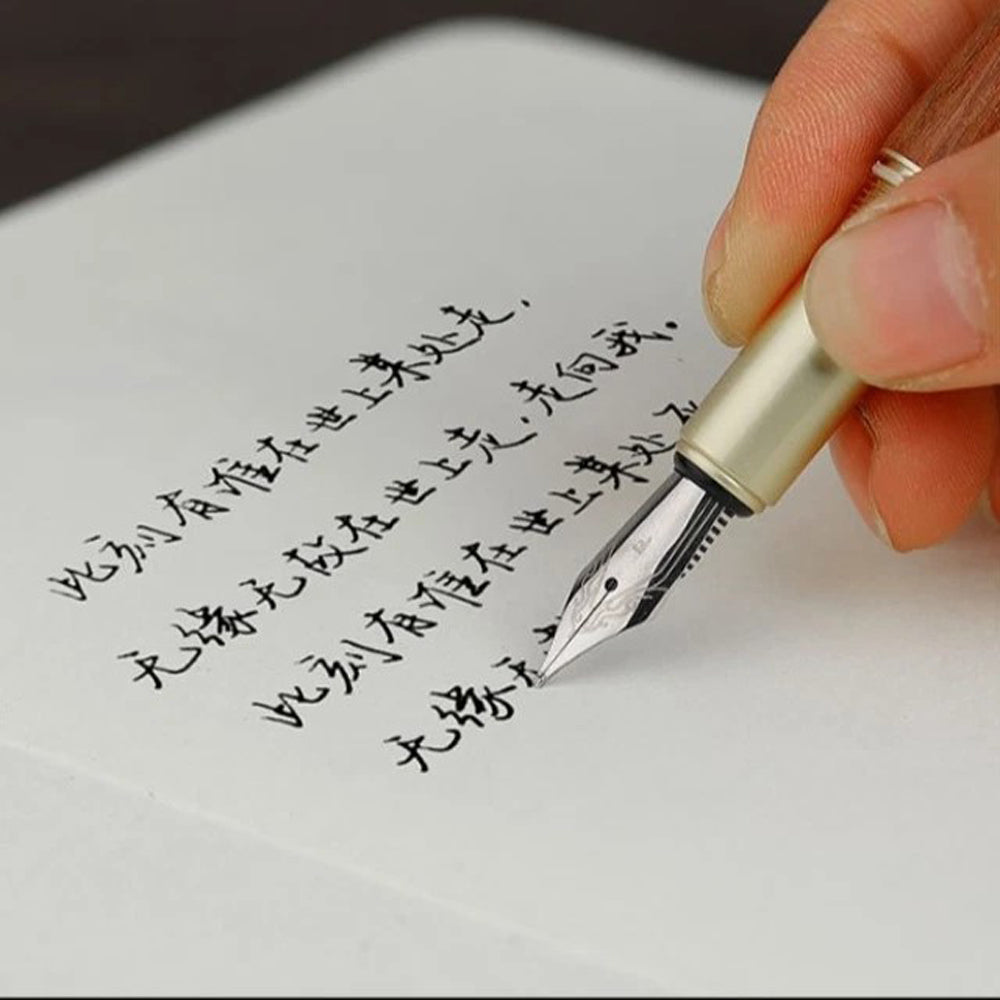 此刻有谁在世上某处走，
无缘无故在世上走，走向我。
此刻有谁在世上某处
无缘无